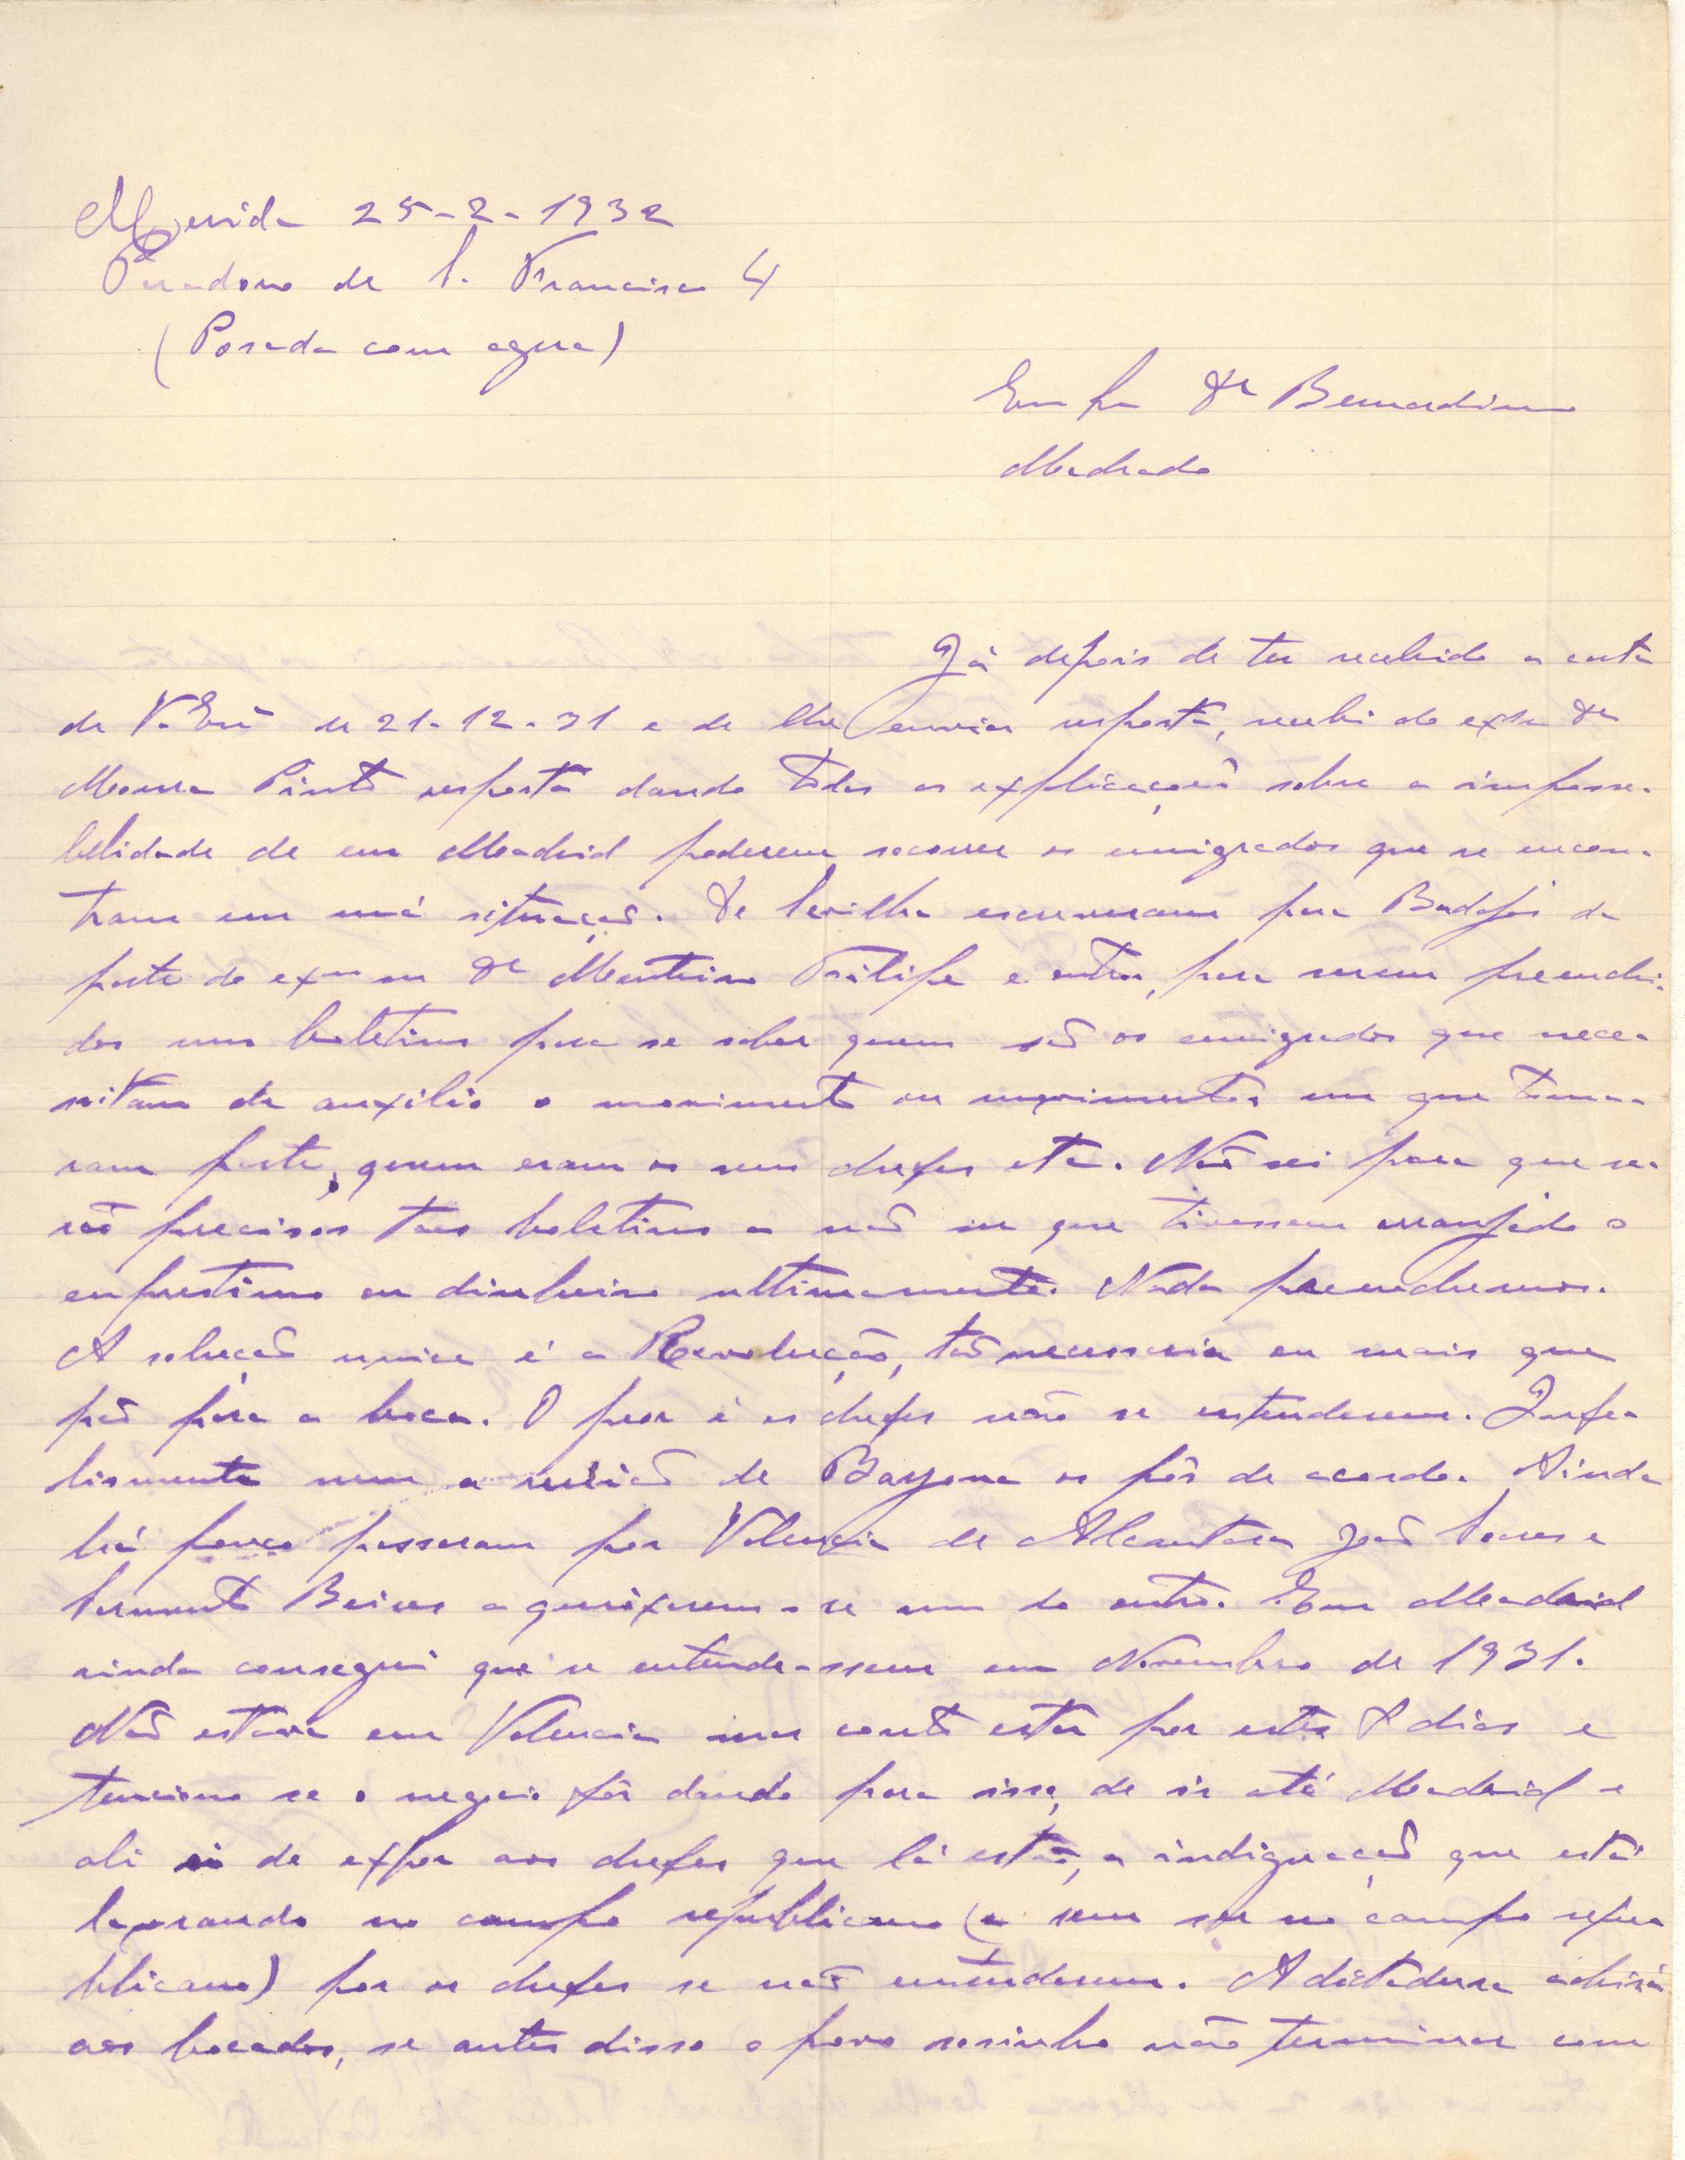 Merida 25-2-1932
Paradone de S. Francisco 4
(Posada com agua)
Exmo Sr Dr Bernardino
Machado
Já depois de ter recebido a carta
de V. Exª de 21-12-31 e de lhe enviar resposta, recebi do exmo Dr
Moura Pinto resposta dando todas as explicações sobre a impossi-
belidade de em Madrid poderem socorrer os emigrados que se encon-
tram em má situação. De Sevilha escreveram para Badajós da
parte do exmo sr Dr Monteiro Filipe e outros, para serem preenchi-
dos uns boletins para se saber quem são os emigrados que nece-
sitam de auxilio o movimento ou movimentos em que toma-
ram parte, quem eram os seus chefes etc. Não sei para que se-
rão precisos taes boletins a não ser que tivessem arranjado o
enprestimo ou dinheiro ultimamente. Nada preenchemos.
A solução unica é a Revolução, tão necessaria ou mais que
pão para a boca. O peor é os chefes não se entenderem. Infe-
lismente nem a reunião de Bayona os pôs de acordo. Ainda
há pouco passaram por Valencia de Alcantara João Soares e
Sarmento Beires a queixarem-se um do outro. Em Madrid
ainda consegui que se entende-ssem em Novembro de 1931.
Não estava em Valencia mas conto estar por estes 8 dias e
tenciono se o negocio fôr dando para isso, de ir até Madrid e
ali ei de expor aos chefes que lá estão, a indignação que está
lavrando no campo republicano (e sem ser no campo repu-
blicano) por os chefes se não entenderem. A dictadura cahirá
aos bocados, se antes disso o povo sosinho não terminar com